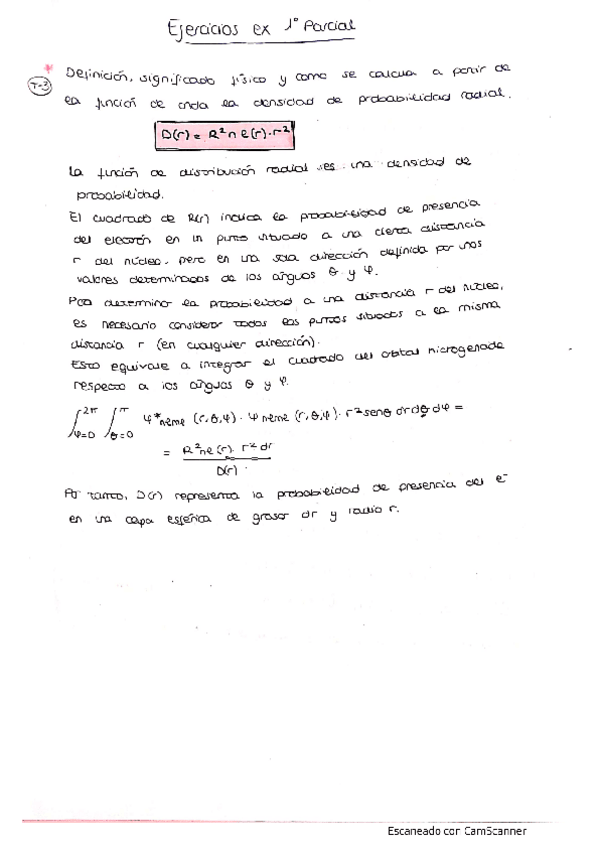 Ejercicios ex 1º Parcial
* Definición, significado físico y como se calcula a partir de
T-3 la función de onda la densidad de probabilidad radial.
D(r) = R²nℓ(r)·r²
La función de distribución radial es una densidad de
probabilidad.
El cuadrado de R(r) indica la probabilidad de presencia
del electrón en un punto situado a una cierta distancia
r del núcleo, pero en una sola dirección definida por unos
valores determinados de los ángulos θ y φ.
Para determinar la probabilidad a una distancia r del núcleo,
es necesario considerar todos los puntos situados a la misma
distancia r (en cualquier dirección).
Esto equivale a integrar el cuadrado del orbital hidrogenoide
respecto a los ángulos θ y φ.
∫φ=0 2π ∫θ=0 π Ψ*nℓmℓ (r,θ,φ) · Ψnℓmℓ (r,θ,φ) · r² senθ dr dθ dφ =
= R²nℓ(r) · r² dr
D(r)
Por tanto, D(r) representa la probabilidad de presencia del e⁻
en una capa esférica de grosor dr y radio r.
Escaneado con CamScanner